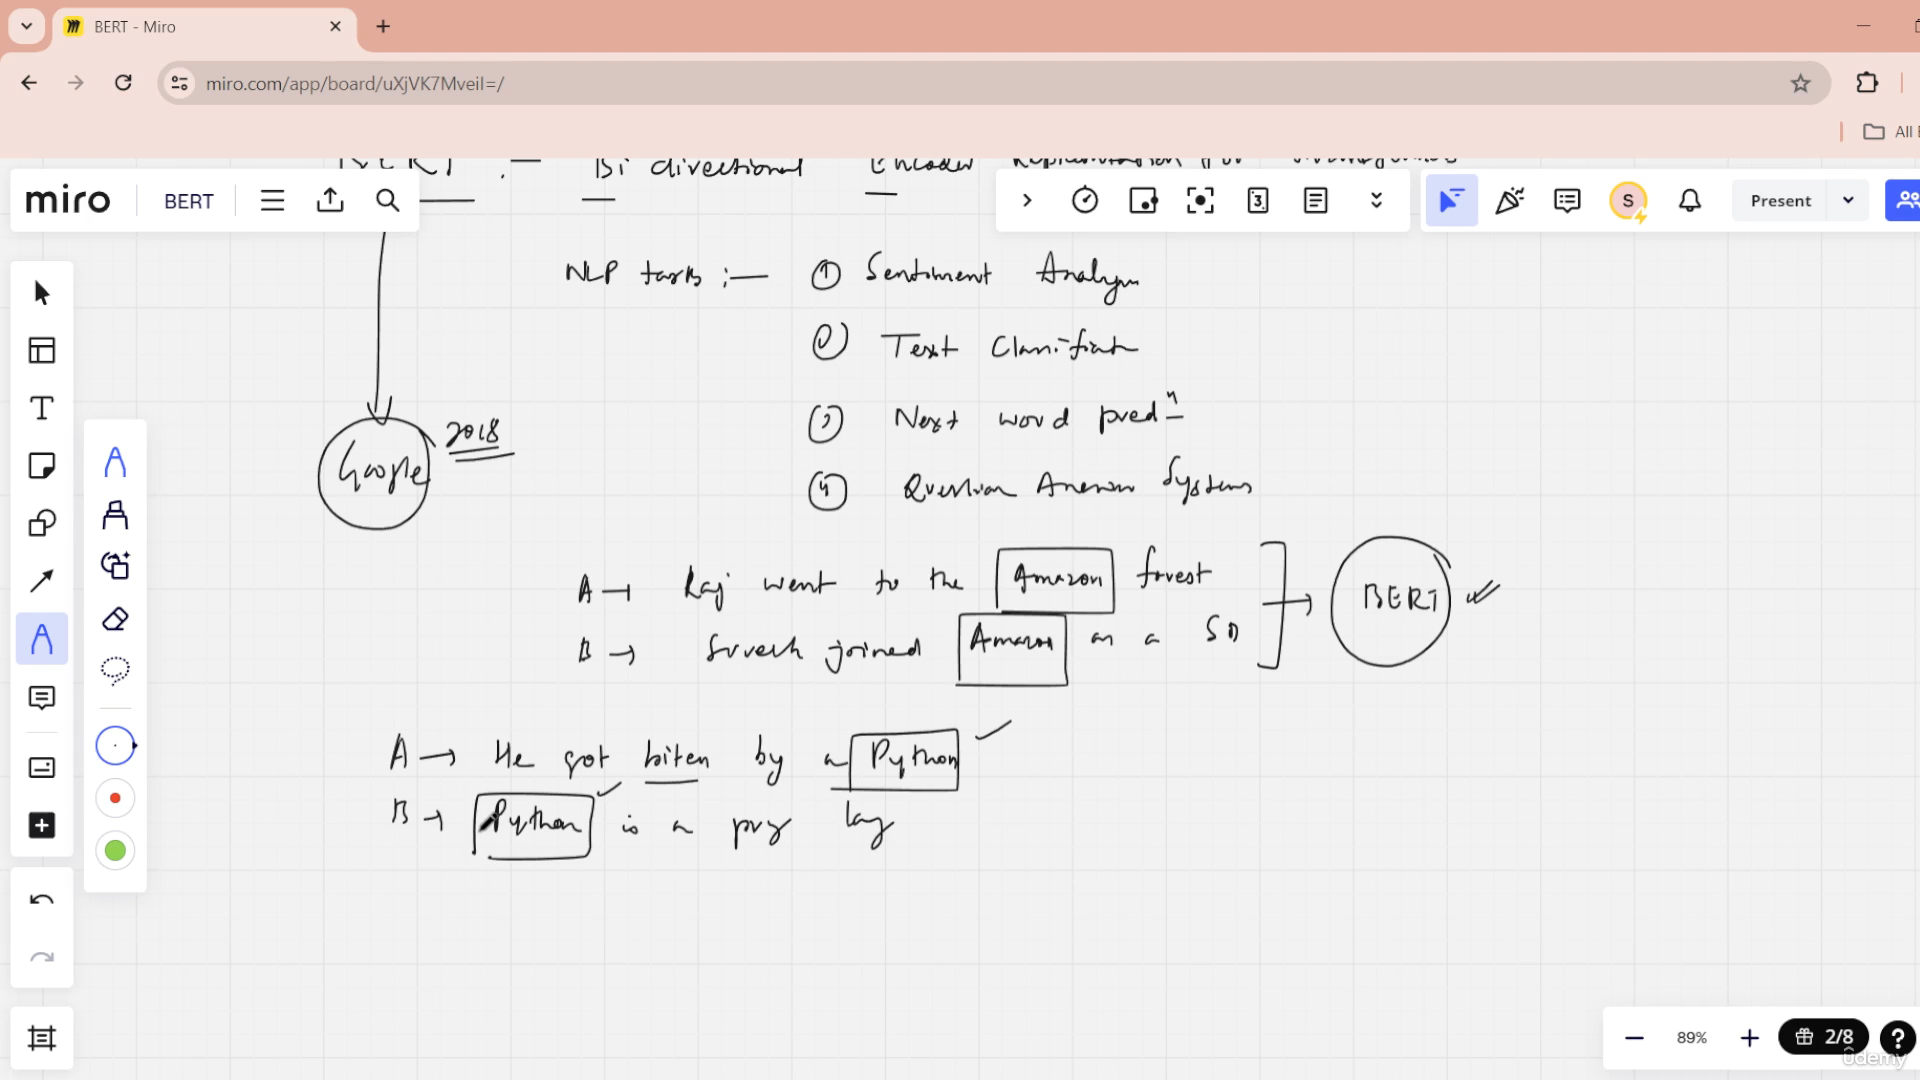 BERT - Miro
miro.com/app/board/uXjVK7Mveil=/
All
BERT :— Bi directional Encoder Representation for
miro BERT
Present
NLP tasks :— ① Sentiment Analysis
② Text
③ Next word predn
④ Question Answer Systems
Google 2018
A → Raj went to the Amazon forest
B → Suresh joined Amazon as a SD
BERT
A → He got biten by a Python
B → Python is a prg lag
89%
2/8
?
ûdemy